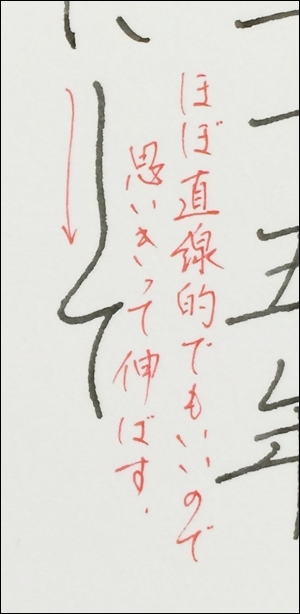 五年
ほぼ直線的でもいいので
思いきって伸ばす.
して